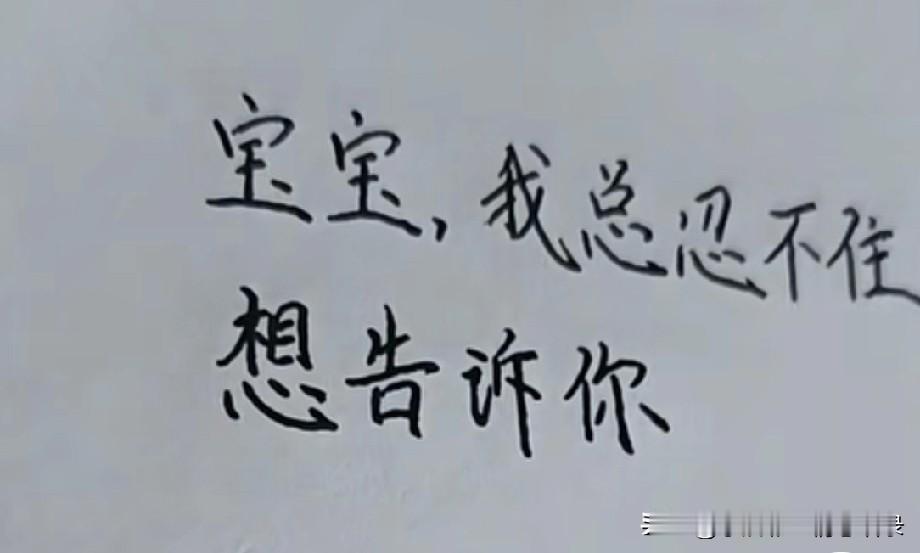 宝宝,我总忍不住
想告诉你